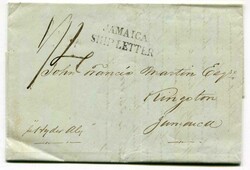 JAMAICA
SHIP LETTER
John Francis Martin Esqr
Kingston
Jamaica
pr Hyder Ali